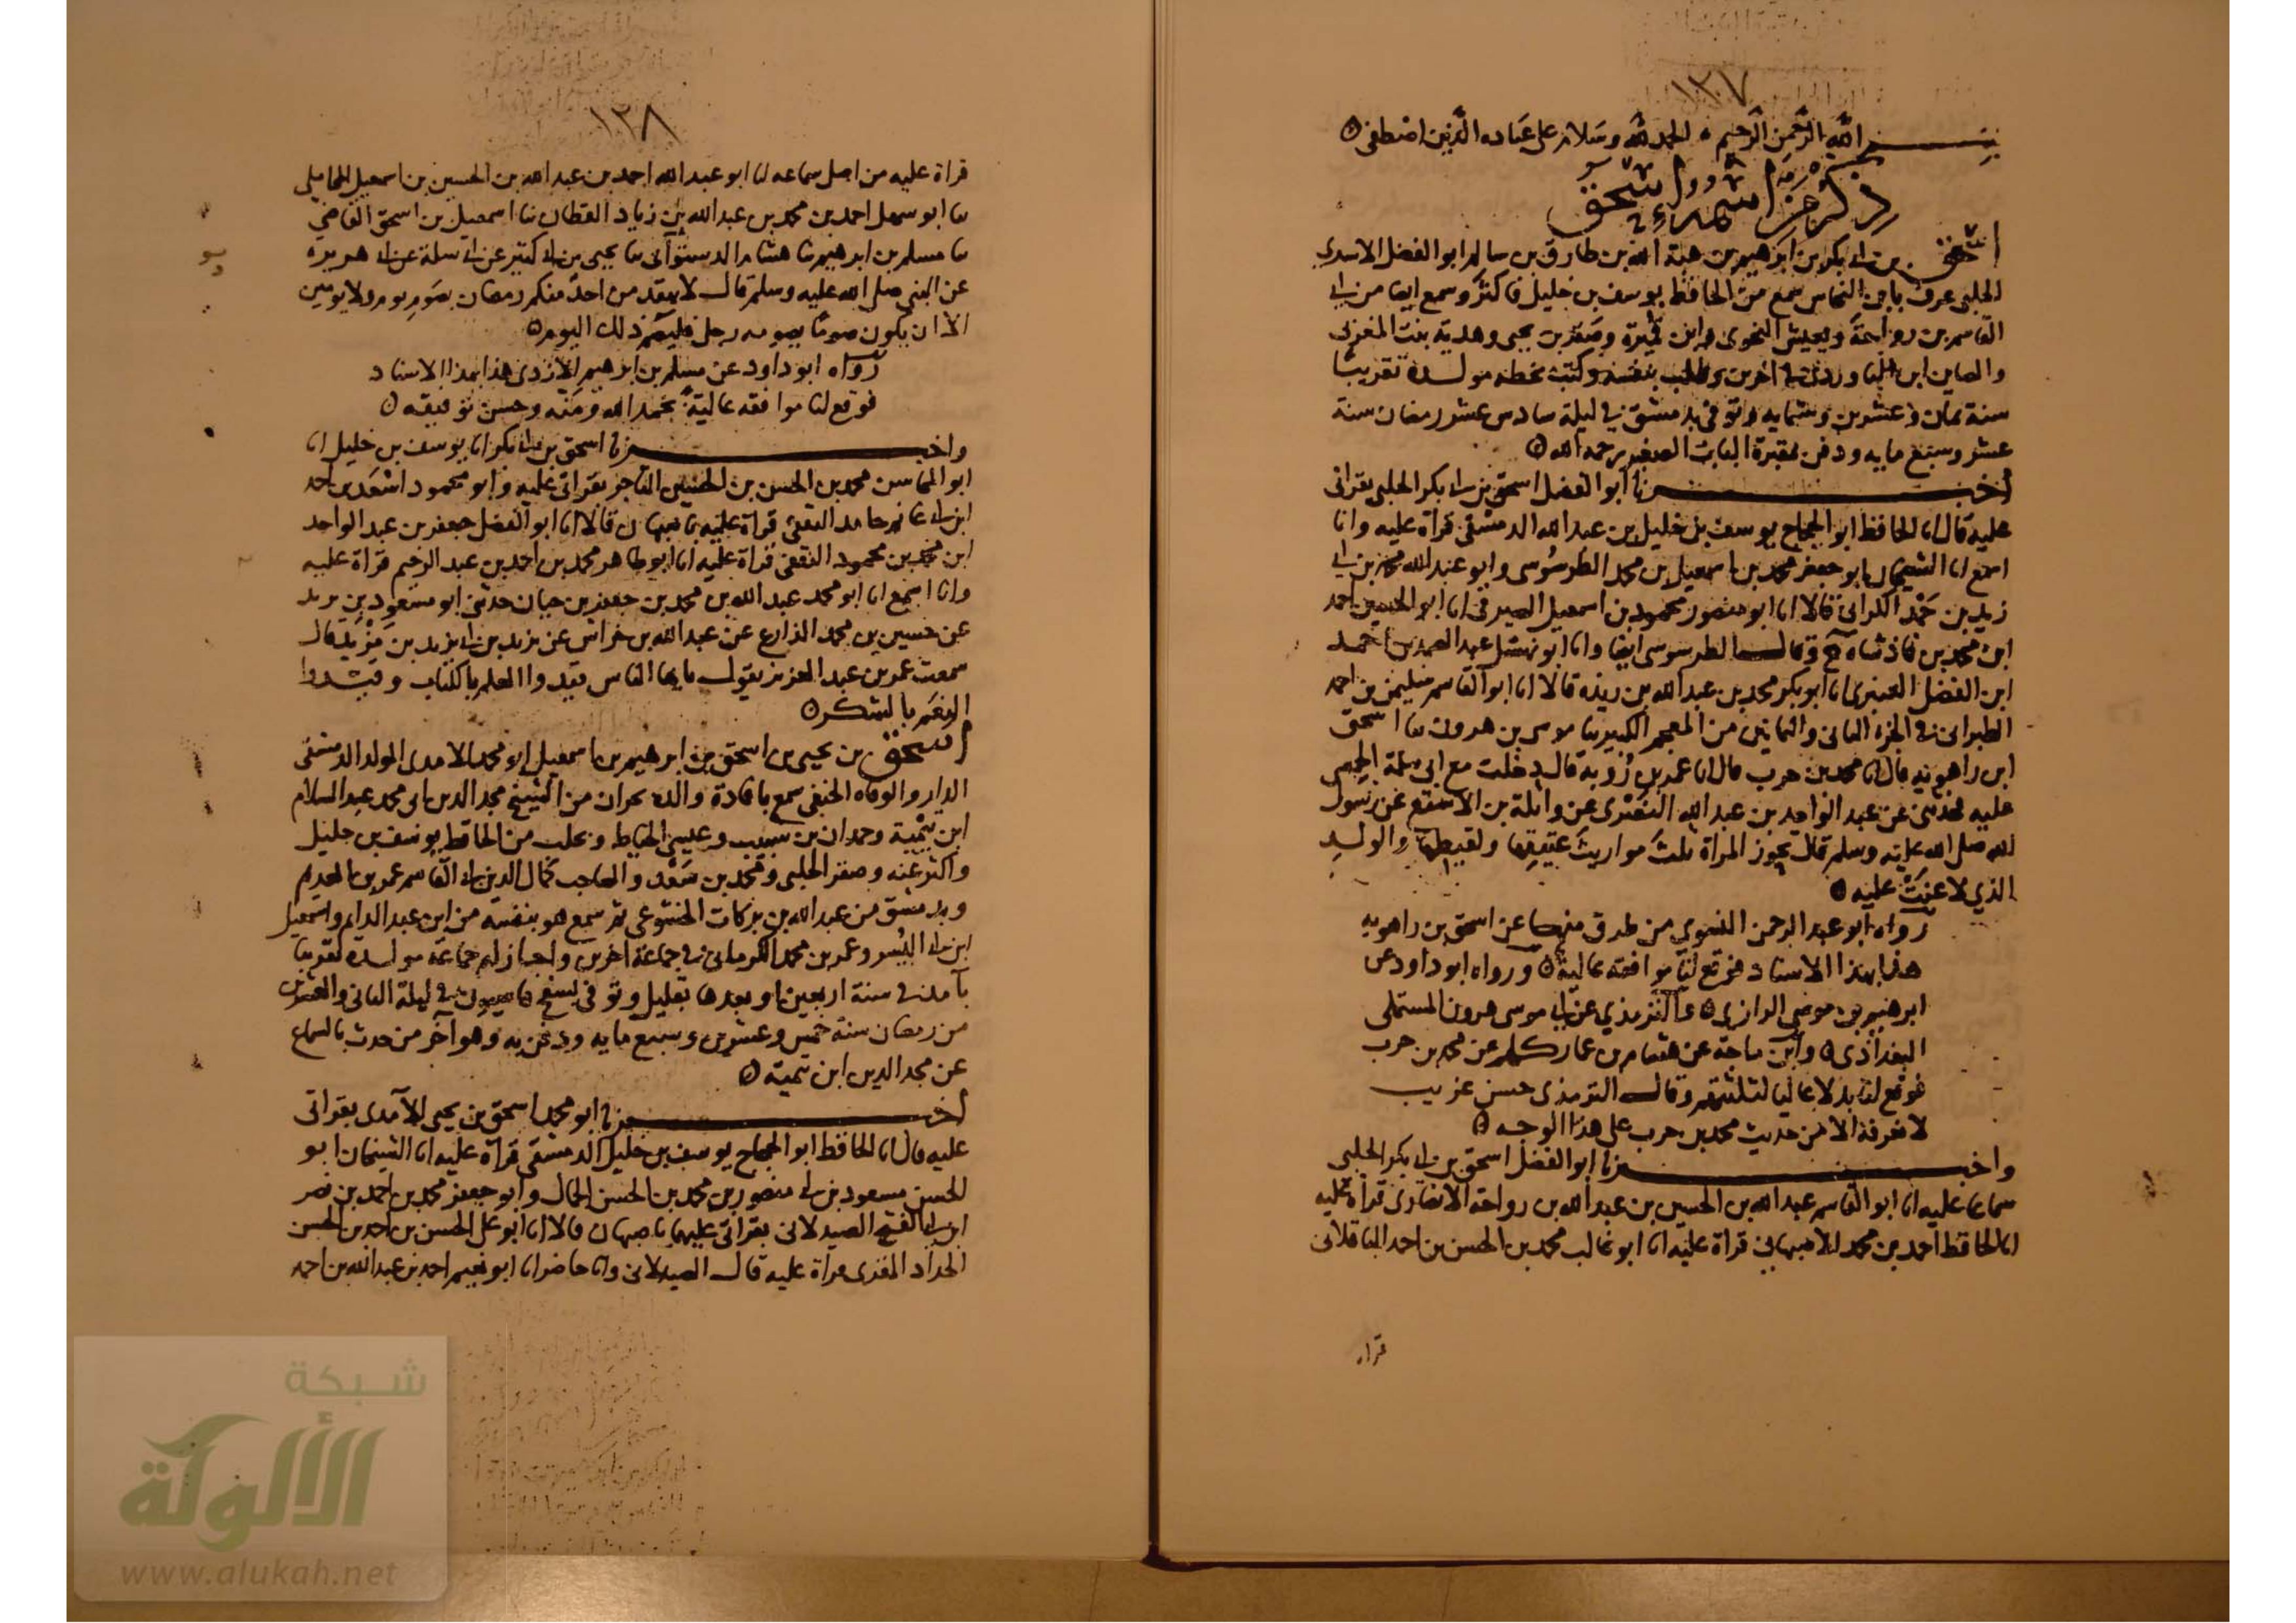 ١٣٧
بسم الله الرحمن الرحيم الحمد لله وسلام على عباده الذين اصطفى
ذكر من اسمه اسحق
اسحق بن ابي بكر بن ابرهيم بن هبة الله بن طارق بن سالم ابو الفضل الاسدي
الحلبي عرف بابن النحاس سمع من الحافظ يوسف بن خليل فاكثر وسمع ايضا من ابي
القاسم بن رواحة ويعيش النحوي وابن قميرة وصقر بن يحيى وهدية بنت
في اخرين وطلب بنفسه وكتب بخطه مولده تقريبا
سنة ثمان وعشرين وستمايه وتوفي بدمشق في ليلة سادس عشر رمضان سنة
عشر وسبع مايه ودفن بمقبرة الباب الصغير رحمه الله
اخبرنا ابو الفضل اسحق بن ابي بكر الحلبي بقراتي
عليه قال انا الحافظ ابو الحجاج يوسف بن خليل بن عبد الله الدمشقي قراة عليه وانا
اسمع انا الشيخان ابو جعفر محمد بن اسمعيل بن محمد الطرسوسي وابو عبد الله محمد بن ابي
زيد بن حمد الكراني قالا انا ابو منصور محمود بن اسمعيل الصيرفي انا ابو الحسين احمد
ابن محمد بن فاذشاه ح وقال الطرسوسي ايضا وانا ابو نهشل عبد الصمد بن احمد
ابن الفضل العنبري انا ابو بكر محمد بن عبد الله بن ريذه قالا انا ابو القاسم سليمن بن احمد
الطبراني في الجزء الثاني والثمانين من المعجم الكبير ثنا موسى بن هرون ثنا اسحق
ابن راهويه قال انا محمد بن حرب قال انا عمر بن روبة قال دخلت مع ابي سلمة الحمصي
عليه فحدثني عن عبد الواحد بن عبد الله النصري عن واثلة بن الاسقع عن رسول
الله صلى الله عليه وسلم قال تحوز المراة ثلث مواريث عتيقها ولقيطها والولد
الذي لاعنت عليه
رواه ابو عبد الرحمن النسوي من طرق منها عن اسحق بن راهويه
هذا بهذا الاسناد فوقع لنا موافقة عالية ورواه ابو داود عن
ابرهيم بن موسى الرازي والترمذي عن ابي موسى هرون المستملي
البغدادي وابن ماجة عن هشام بن عمار كلهم عن محمد بن حرب
فوقع لنا بدلا عاليا لثلثتهم وقال الترمذي حسن غريب
لا نعرفه الا من حديث محمد بن حرب على هذا الوجه
واخبرنا ابو الفضل اسحق بن ابي بكر الحلبي
سماعا عليه انا ابو القاسم عبد الله بن الحسين بن عبد الله بن رواحة الانصاري قراة عليه
انا الحافظ احمد بن محمد الاصبهاني قراة عليه انا ابو غالب محمد بن الحسن بن احمد الباقلاني
قراة
١٣٨
قراة عليه من اصل سماعه انا ابو عبد الله احمد بن عبد الله بن الحسين بن اسمعيل المحاملي
ثنا ابو سهل احمد بن محمد بن عبد الله بن زياد القطان ثنا اسمعيل بن اسحق القاضي
ثنا مسلم بن ابرهيم ثنا هشام الدستوائي ثنا يحيى بن ابي كثير عن ابي سلمة عن ابي هريرة
عن النبي صلى الله عليه وسلم قال لا يتقدمن احد منكم رمضان بصوم يوم ولا يومين
الا ان يكون صوما يصومه رجل فليصم ذلك اليوم
رواه ابو داود عن مسلم بن ابرهيم الازدي هذا بهذا الاسناد
فوقع لنا موافقة عالية بحمد الله ومنه وحسن توفيقه
واخبرنا اسحق بن ابي بكر انا يوسف بن خليل انا
ابو المحاسن محمد بن الحسن بن الحسين التاجر بقراتي عليه وابو محمود اسعد بن احمد
ابن ابي غانم حامد الثقفي قراة عليه باصبهان قالا انا ابو الفضل جعفر بن عبد الواحد
ابن محمد بن محمود الثقفي قراة عليه انا ابو طاهر محمد بن احمد بن عبد الرحيم قراة عليه
وانا اسمع انا ابو محمد عبد الله بن محمد بن جعفر بن حيان حدثني ابو مسعود بن يزيد
عن حسين بن محمد الذارع عن عبد الله بن خراش عن يزيد بن يزيد بن مزيد قال
سمعت عمر بن عبد العزيز يقول يايها الناس قيدوا العلم بالكتاب وقيدوا
النعم بالشكر
اسحق بن يحيى بن اسحق بن ابرهيم بن اسمعيل ابو محمد الامدي المولد الدمشقي
الدار والوفاه الحنفي سمع بافادة والده بحران من الشيخ مجد الدين ابي محمد عبد السلام
ابن تيمية وحمدان بن شبيب وعيسى الخياط وبحلب من الحافظ يوسف بن خليل
واكثر عنه وصقر الحلبي ومحمد بن سعد والصاحب كمال الدين ابي القاسم عمر بن العديم
وبدمشق من عبد الله بن بركات الخشوعي ثم سمع هو بنفسه من ابن عبد الدايم واسمعيل
ابن ابي اليسر وعمر بن محمد الكرماني في جماعة اخرين واجاز له جماعة مولده تقريبا
بآمد في سنة اربعين او بعدها بقليل وتوفي بسفح قاسيون في ليلة الثاني والعشرين
من رمضان سنة خمس وعشرين وسبع مايه ودفن به وهو آخر من حدث بالسماع
عن مجد الدين ابن تيمية
اخبرنا ابو محمد اسحق بن يحيى الآمدي بقراتي
عليه قال انا الحافظ ابو الحجاج يوسف بن خليل الدمشقي قراة عليه انا الشيخان ابو
الحسن مسعود بن ابي منصور بن محمد بن الحسن الجمال وابو جعفر محمد بن احمد بن نصر
ابن ابي الفتح الصيدلاني بقراتي عليهما باصبهان قالا انا ابو علي الحسن بن احمد بن الحسن
الحداد المقري قراة عليه قال الصيدلاني وانا حاضر انا ابو نعيم احمد بن عبد الله بن احمد
شبكة
الألوكة
www.alukah.net